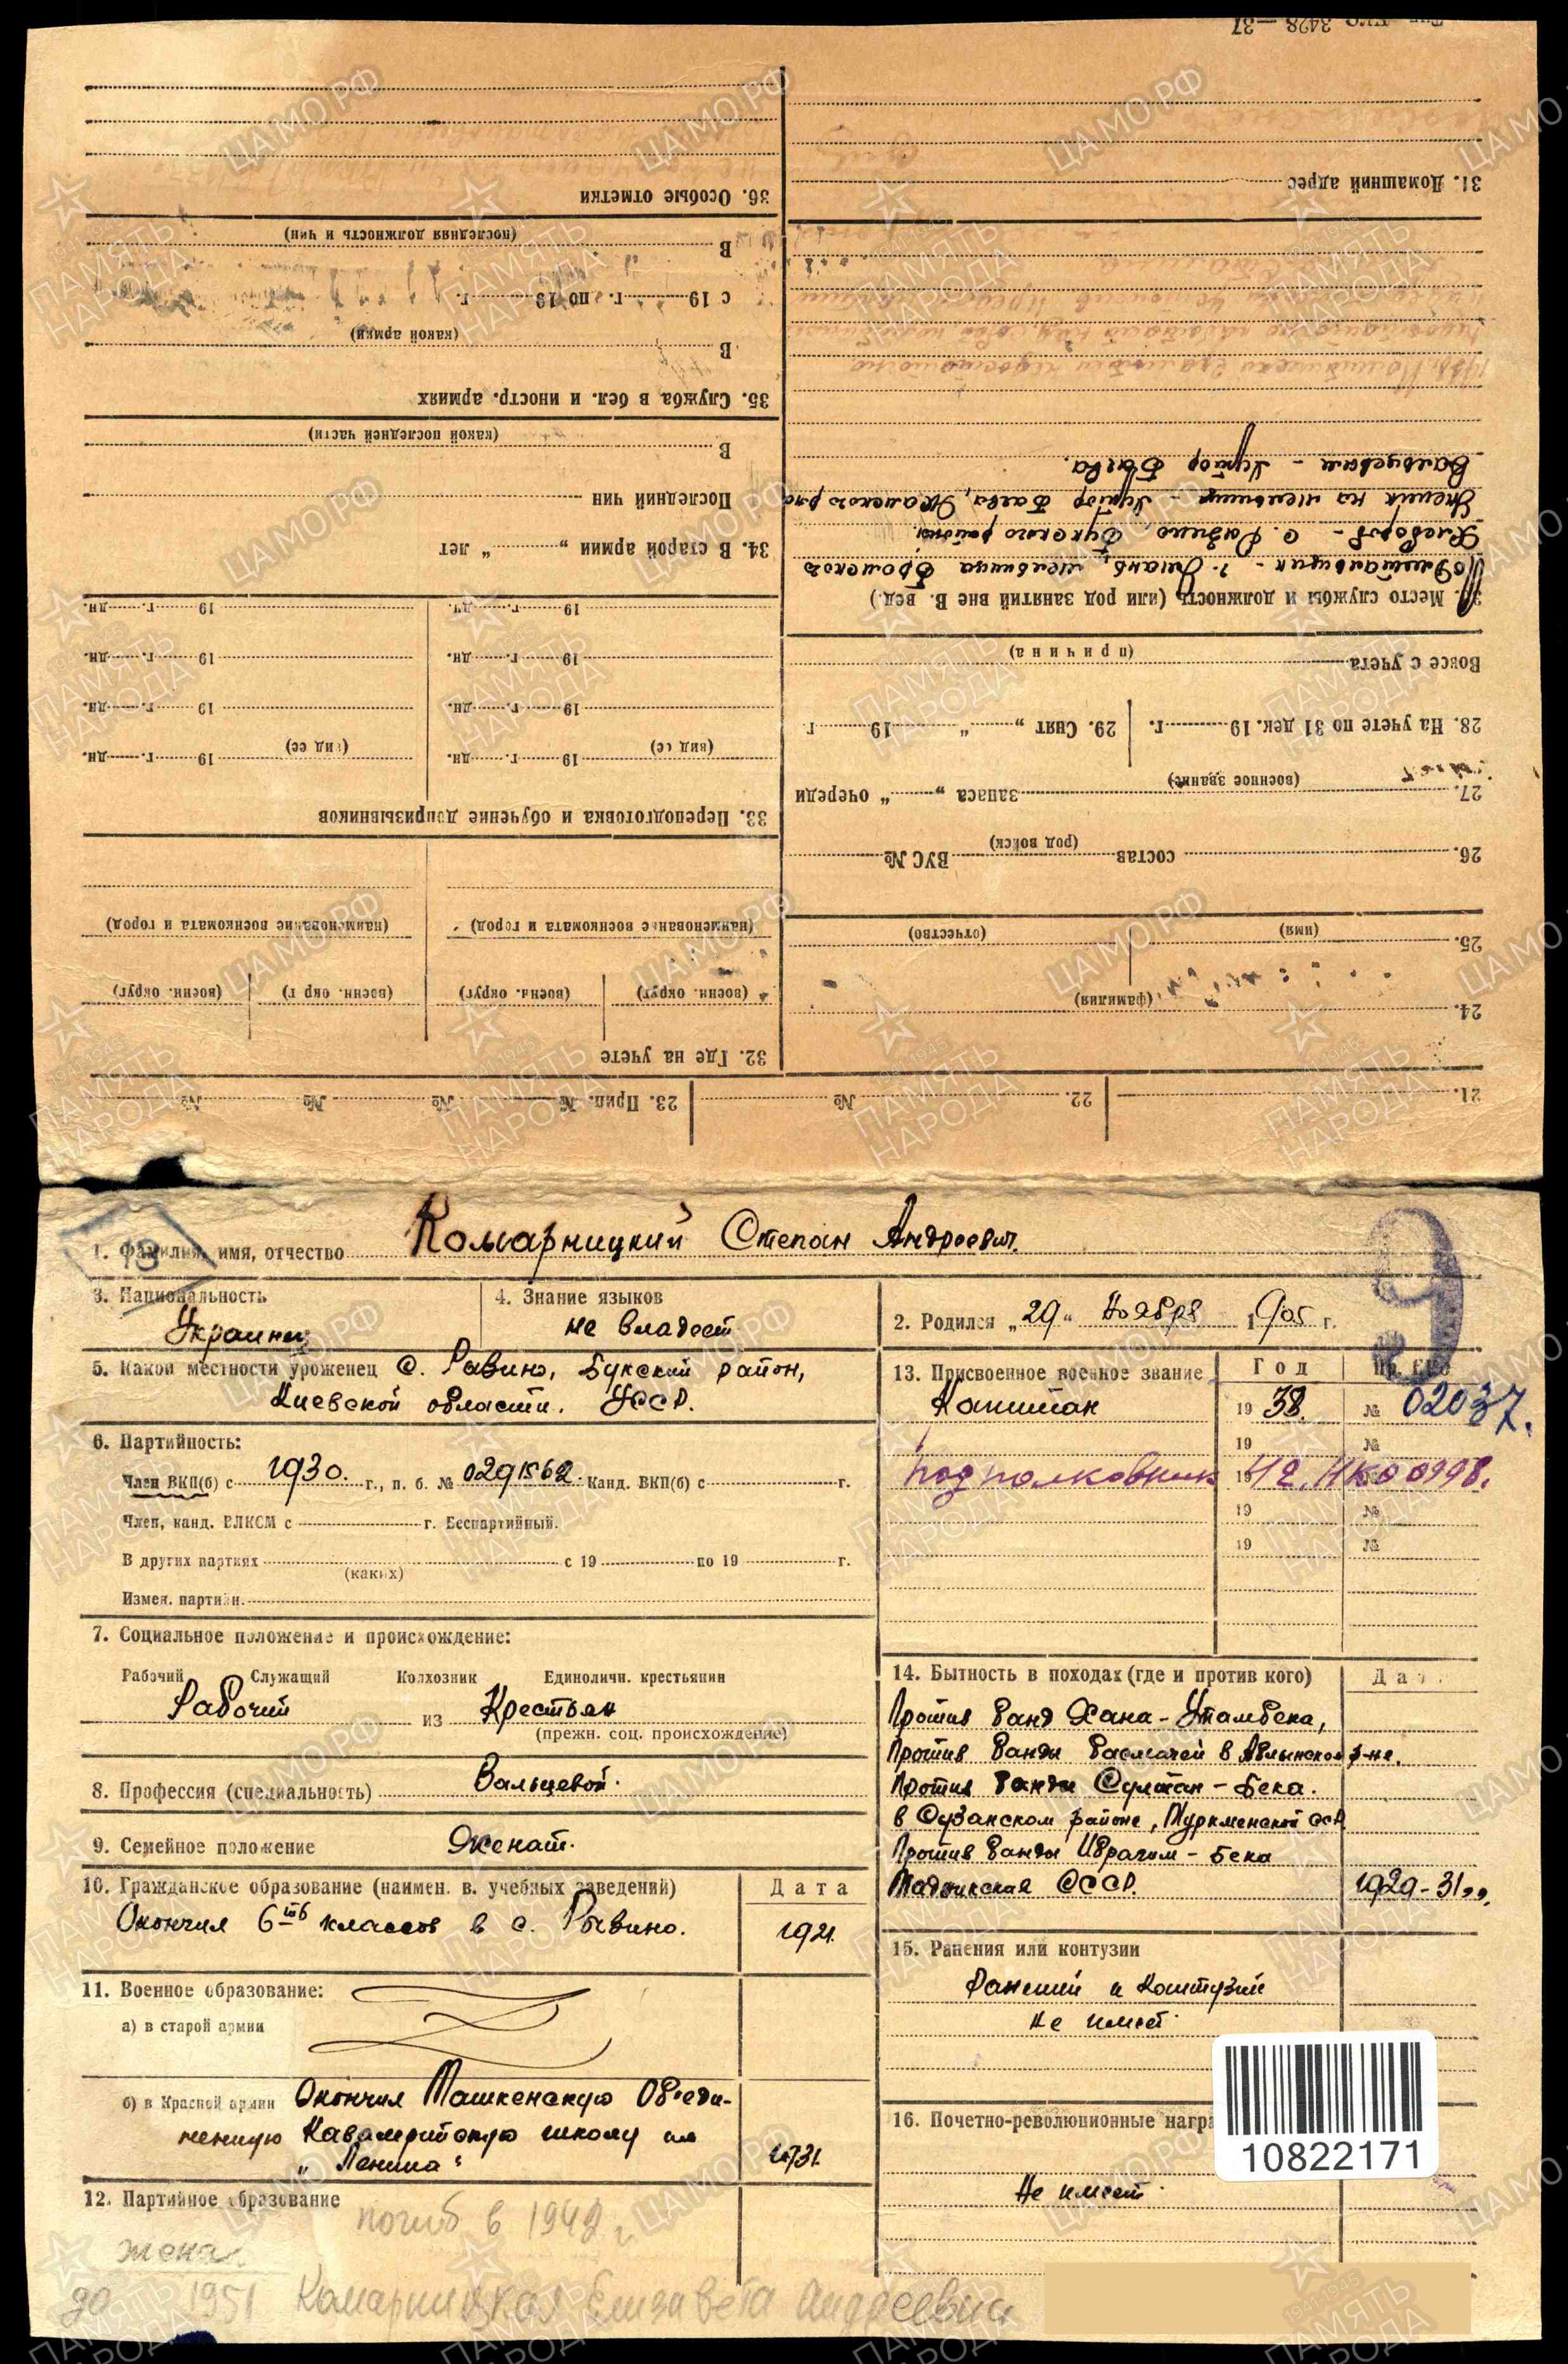 1. Фамилия, имя, отчество Комарницкий Степан Андреевич.
13
9
3. Национальность
Украинец
4. Знание языков
не владеет
2. Родился „29“ Ноября 1905 г.
5. Какой местности уроженец С. Равино, Букский район,
Киевской области. УССР.
6. Партийность:
Член ВКП(б) с 1930. г., п. б. № 0291562. Канд. ВКП(б) с г.
Член, канд. ВЛКСМ с г. Беспартийный.
В других партиях с 19 по 19 г.
(каких)
Измен. партийн.
7. Социальное положение и происхождение:
Рабочий Служащий Колхозник Единоличн. крестьянин
Рабочий из Крестьян
(прежн. соц. происхождение)
8. Профессия (специальность) Вальцевой.
9. Семейное положение Женат.
10. Гражданское образование (наимен. в. учебных заведений) Дата
Окончил 6ть классов в с. Равино. 1921.
11. Военное образование:
а) в старой армии
б) в Красной армии Окончил Ташкенскую Об'еди-
ненную Кавалерийскую школу им
„Ленина“ 1931.
12. Партийное образование
погиб в 1942 г.
жена
до 1951 Комарницкая Елизавета Андреевна
13. Присвоенное военное звание Год Пр. НКО
Капитан 1938. № 02037.
19 №
подполковник 1942. НКО 0998.
19 №
19 №
14. Бытность в походах (где и против кого) Дата
Против банд Хана-Утамбека,
Против банды басмачей в р-не.
Против банды Султан-Бека.
в Сузанском районе, Туркменской ССР
Против банды Ибрагим-Бека
Таджикская ССР. 1929-31
15. Ранения или контузии
Ранений и Контузий
не имеет.
16. Почетно-революционные награ
Не имеет.
10822171
21. 22. № 23. Прип. № № № №
24.
(фамилия)
25.
(имя) (отчество)
26. состав ВУС №
(род войск)
27. запаса „ “ очереди
(военное звание)
28. На учете по 31 дек. 19 г. 29. Снят „ “ 19 г
Вовсе с учета
(причина)
30. Место службы и должность (или род занятий вне В. вед.)
Подметальщик - г. Умань, мельница Бромского
Хлебороб - с. Равино, Букского района.
Вальцевым - Хутор Баева.
31. Домашний адрес
32. Где на учете
(военн. округ) (военн. округ) (военн. округ) (военн. округ)
(наименование военкомата и город) (наименование военкомата и город)
33. Переподготовка и обучение допризывников
(вид ее) 19 г. дн. (вид ее) 19 г. дн.
19 г. дн. 19 г. дн.
19 г. дн. 19 г. дн.
19 г. дн. 19 г. дн.
34. В старой армии „ “ лет
Последний чин
В
(какой последней части)
35. Служба в бел. и иностр. армиях
В
(какой армии)
с 19 г. по 19 г.
В
(последняя должность и чин)
36. Особые отметки
3428—37
ПАМЯТЬ НАРОДА
ЦАМО.РФ